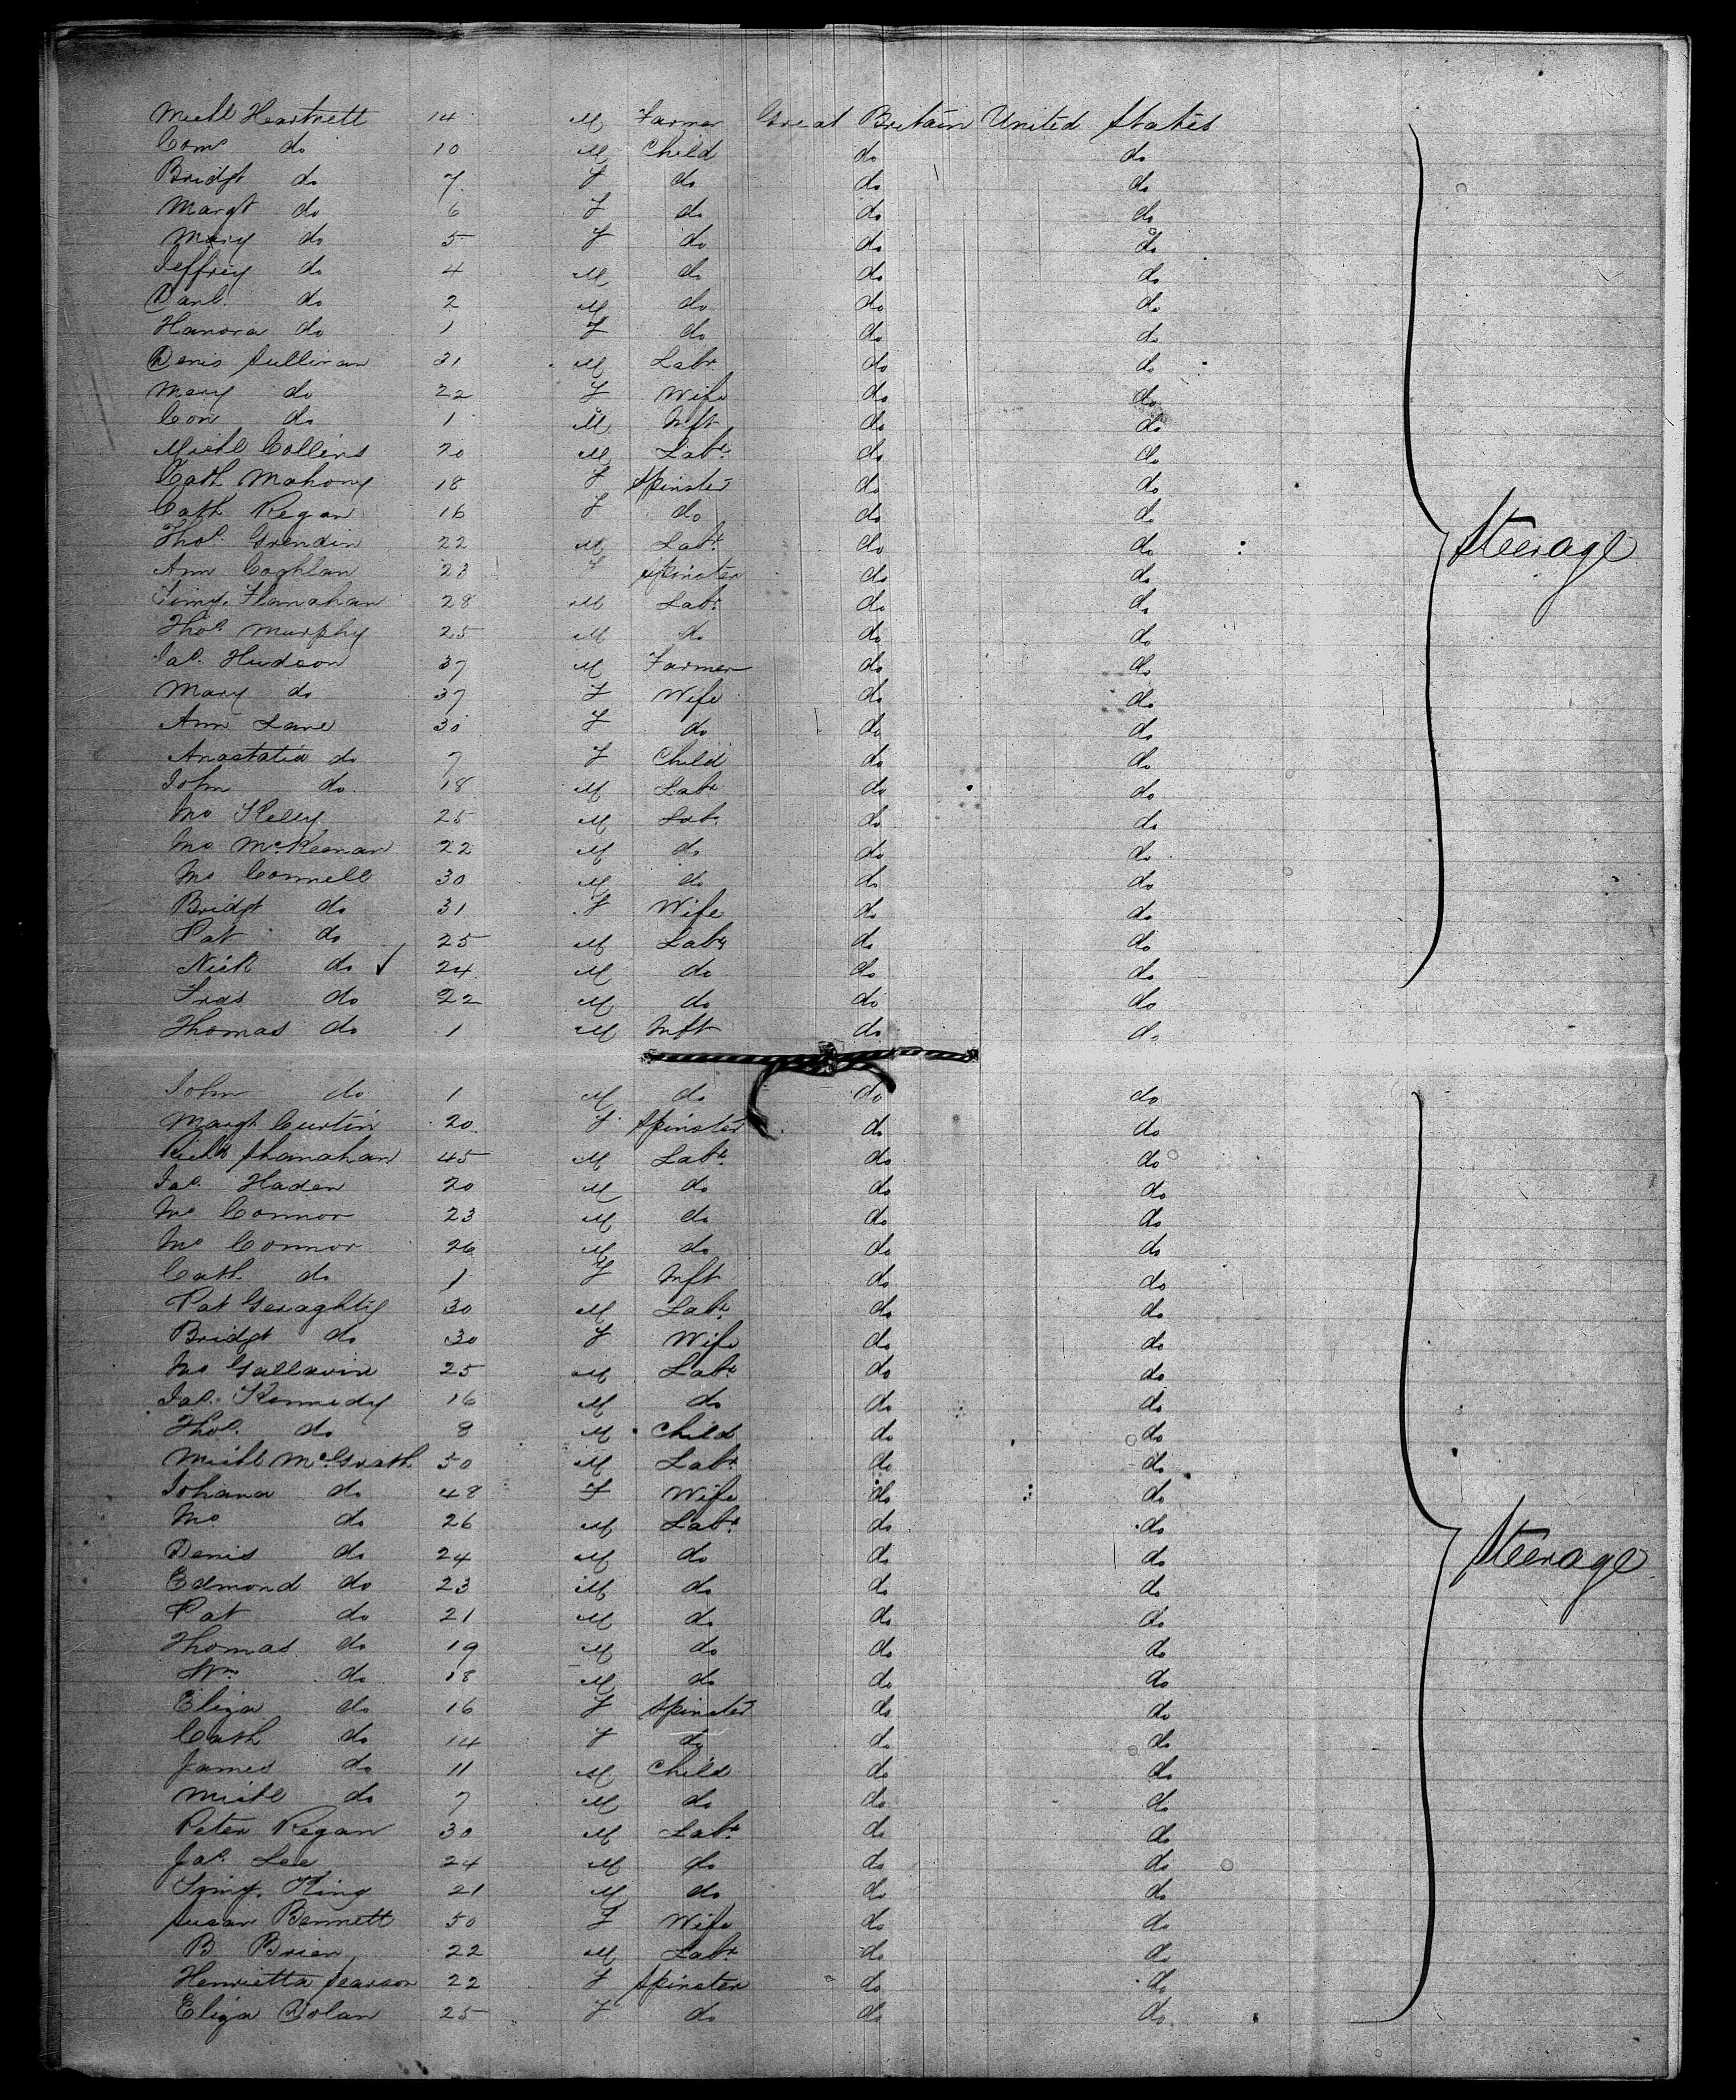 Michl Heartnett 14 M Farmer Great Britain United States
Corns do 10 M Child do do
Bridgt do 7 F do do do
Margt do 6 F do do do
Mary do 5 F do do do
Jeffrey do 4 M do do do
Danl. do 2 M do do do
Hanora do 1 F do do do
Denis Sullivan 31 M Labr do do
Mary do 22 F Wife do do
Con do 1 M Inft do do
Michl Collins 20 M Labr. do do
Cath Mahony 18 F Spinster do do
Cath Regan 16 F do do do
Thos. Grendin 22 M Labr. do do
Steerage
Ann Coghlan 23 F Spinster do do
Timy. Flanahan 28 M Labr. do do
Thos. Murphy 25 M do do do
Jas. Hudson 37 M Farmer do do
Mary do 37 F Wife do do
Ann Lane 30 F do do do
Anastatia do 7 F Child do do
John do 18 M Labr do do
Jno Kelly 25 M Labr do do
Jno McKeenan 22 M do do do
Jno Connell 30 M do do do
Bridgt do 31 F Wife do do
Pat do 25 M Labr do do
Nick do ✓ 24 M do do do
Fras do 22 M do do do
Thomas do 1 M Inft do do
John do 1 M do do do
Margt Curtin 20 F Spinster do do
Richd Shanahan 45 M Labr. do do
Jas. Haden 20 M do do do
Jno Connor 23 M do do do
Jno Connor 26 M do do do
Cath do 1 F Inft do do
Pat Geraghty 30 M Labr. do do
Bridgt do 30 F Wife do do
Jno Gallavin 25 M Labr. do do
Jas. Kennedy 16 M do do do
Thos. do 8 M Child do do
Michl McGrath 50 M Labr. do do
Johana do 48 F Wife do do
Jno do 26 M Labr. do do
Denis do 24 M do do do
Steerage
Edmond do 23 M do do do
Pat do 21 M do do do
Thomas do 19 M do do do
Wm do 18 M do do do
Eliza do 16 F Spinster do do
Cath do 14 F do do do
James do 11 M Child do do
Michl do 7 M do do do
Peter Regan 30 M Labr. do do
Jas. Lee 24 M do do do
Timy. King 21 M do do do
Susan Bennett 50 F Wife do do
B Brien 22 M Labr do do
Henrietta Pearson 22 F Spinster do do
Eliza Dolan 25 F do do do